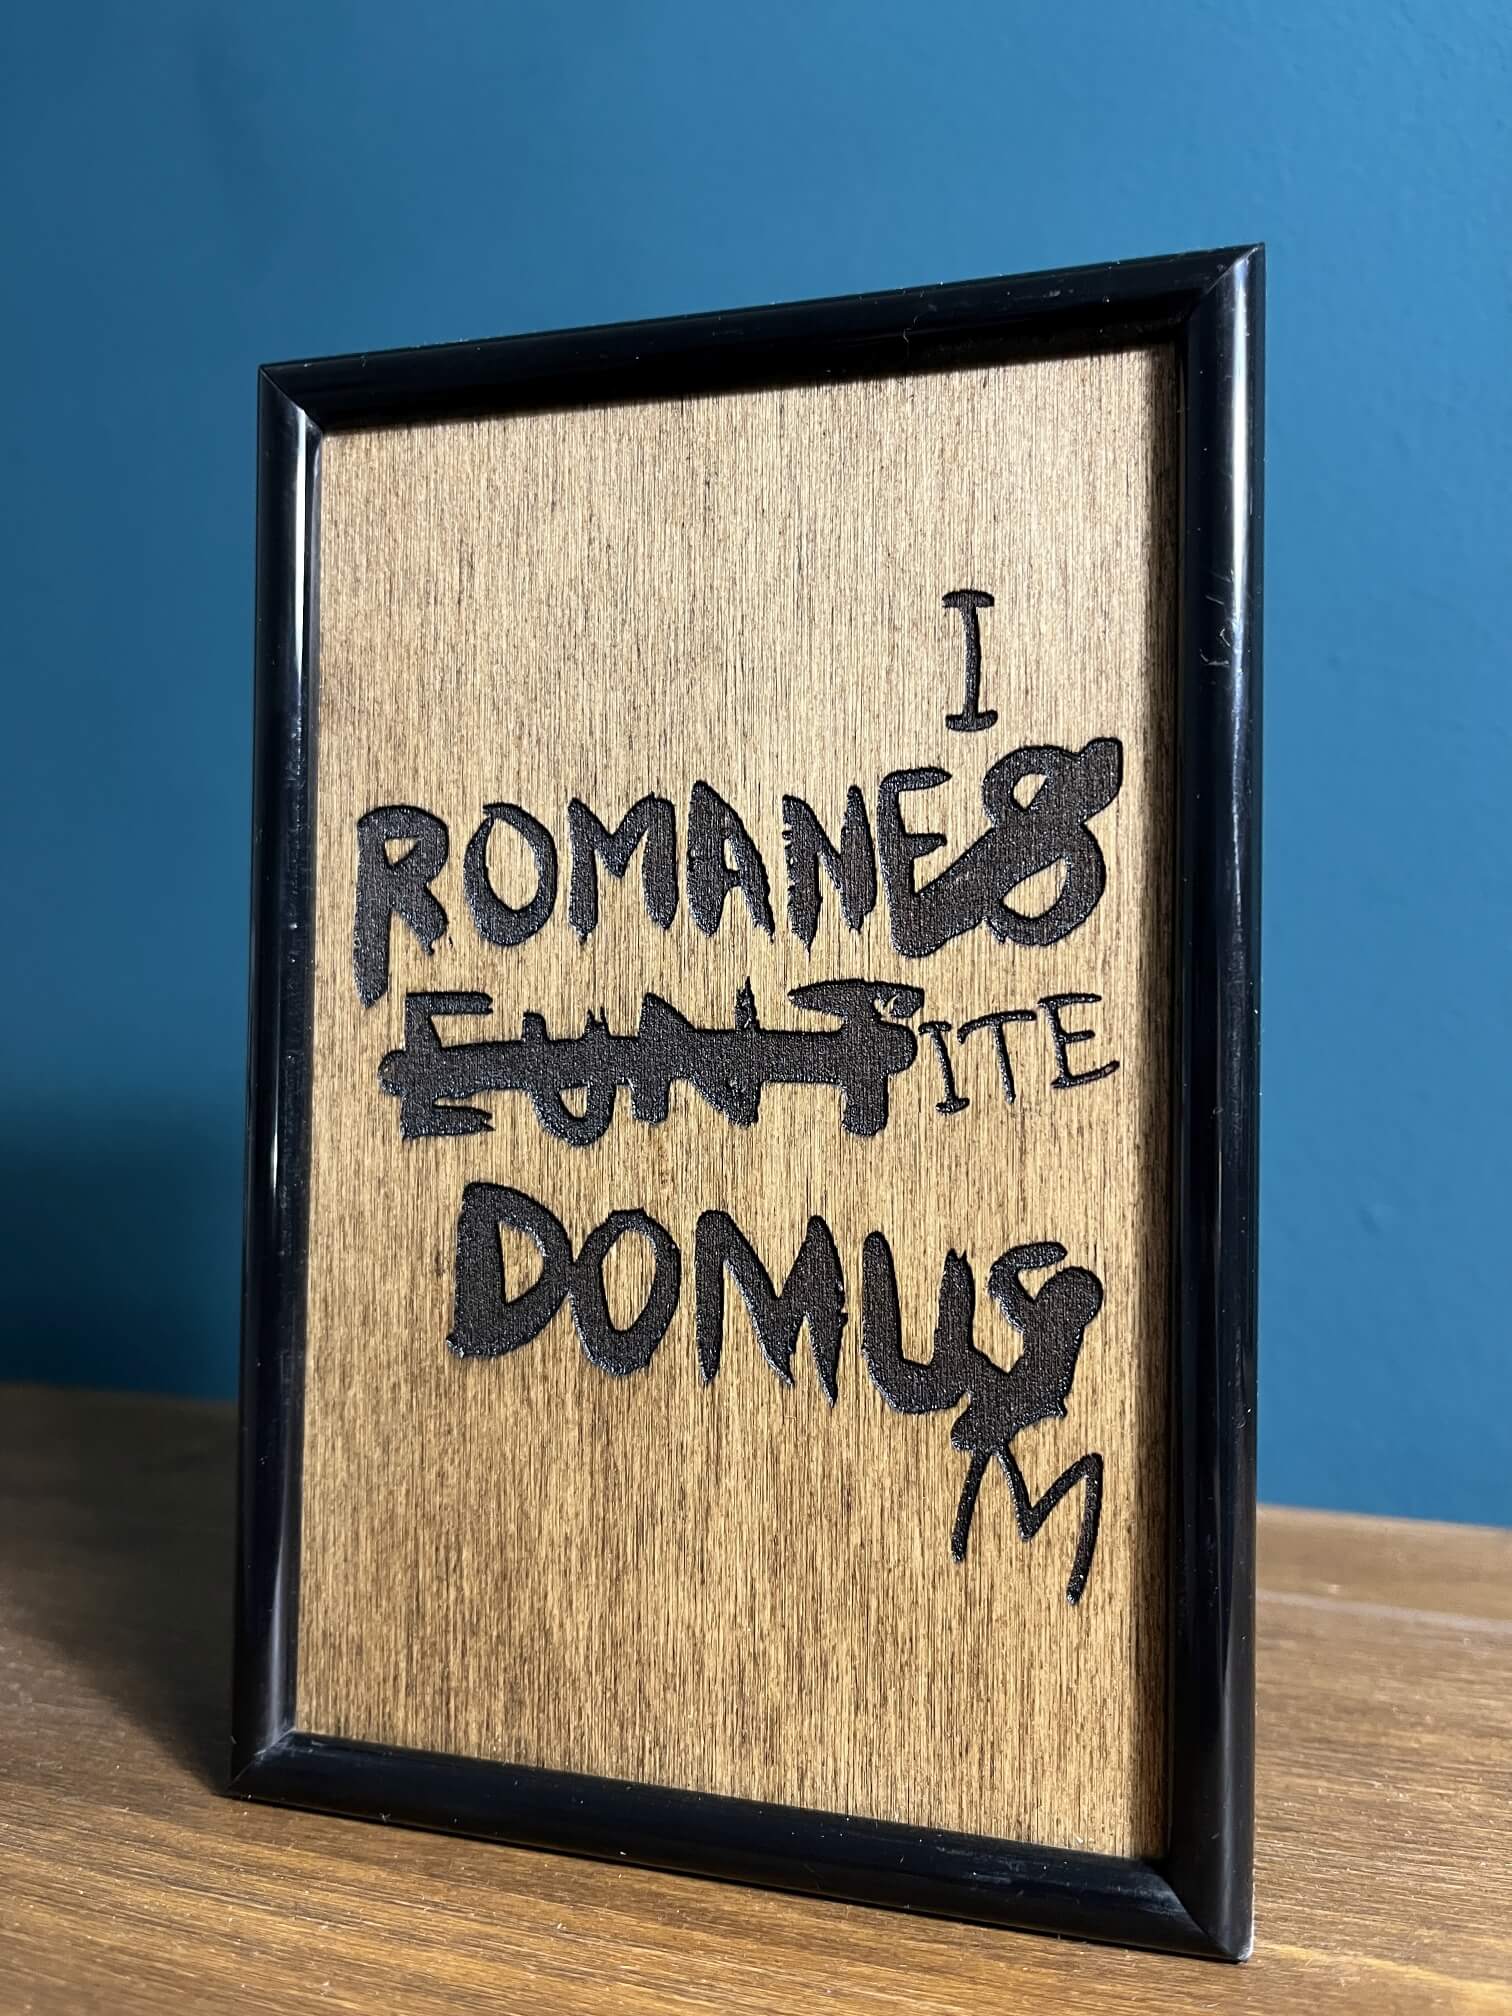 I
ROMANES
EUNT ITE
DOMUS
M